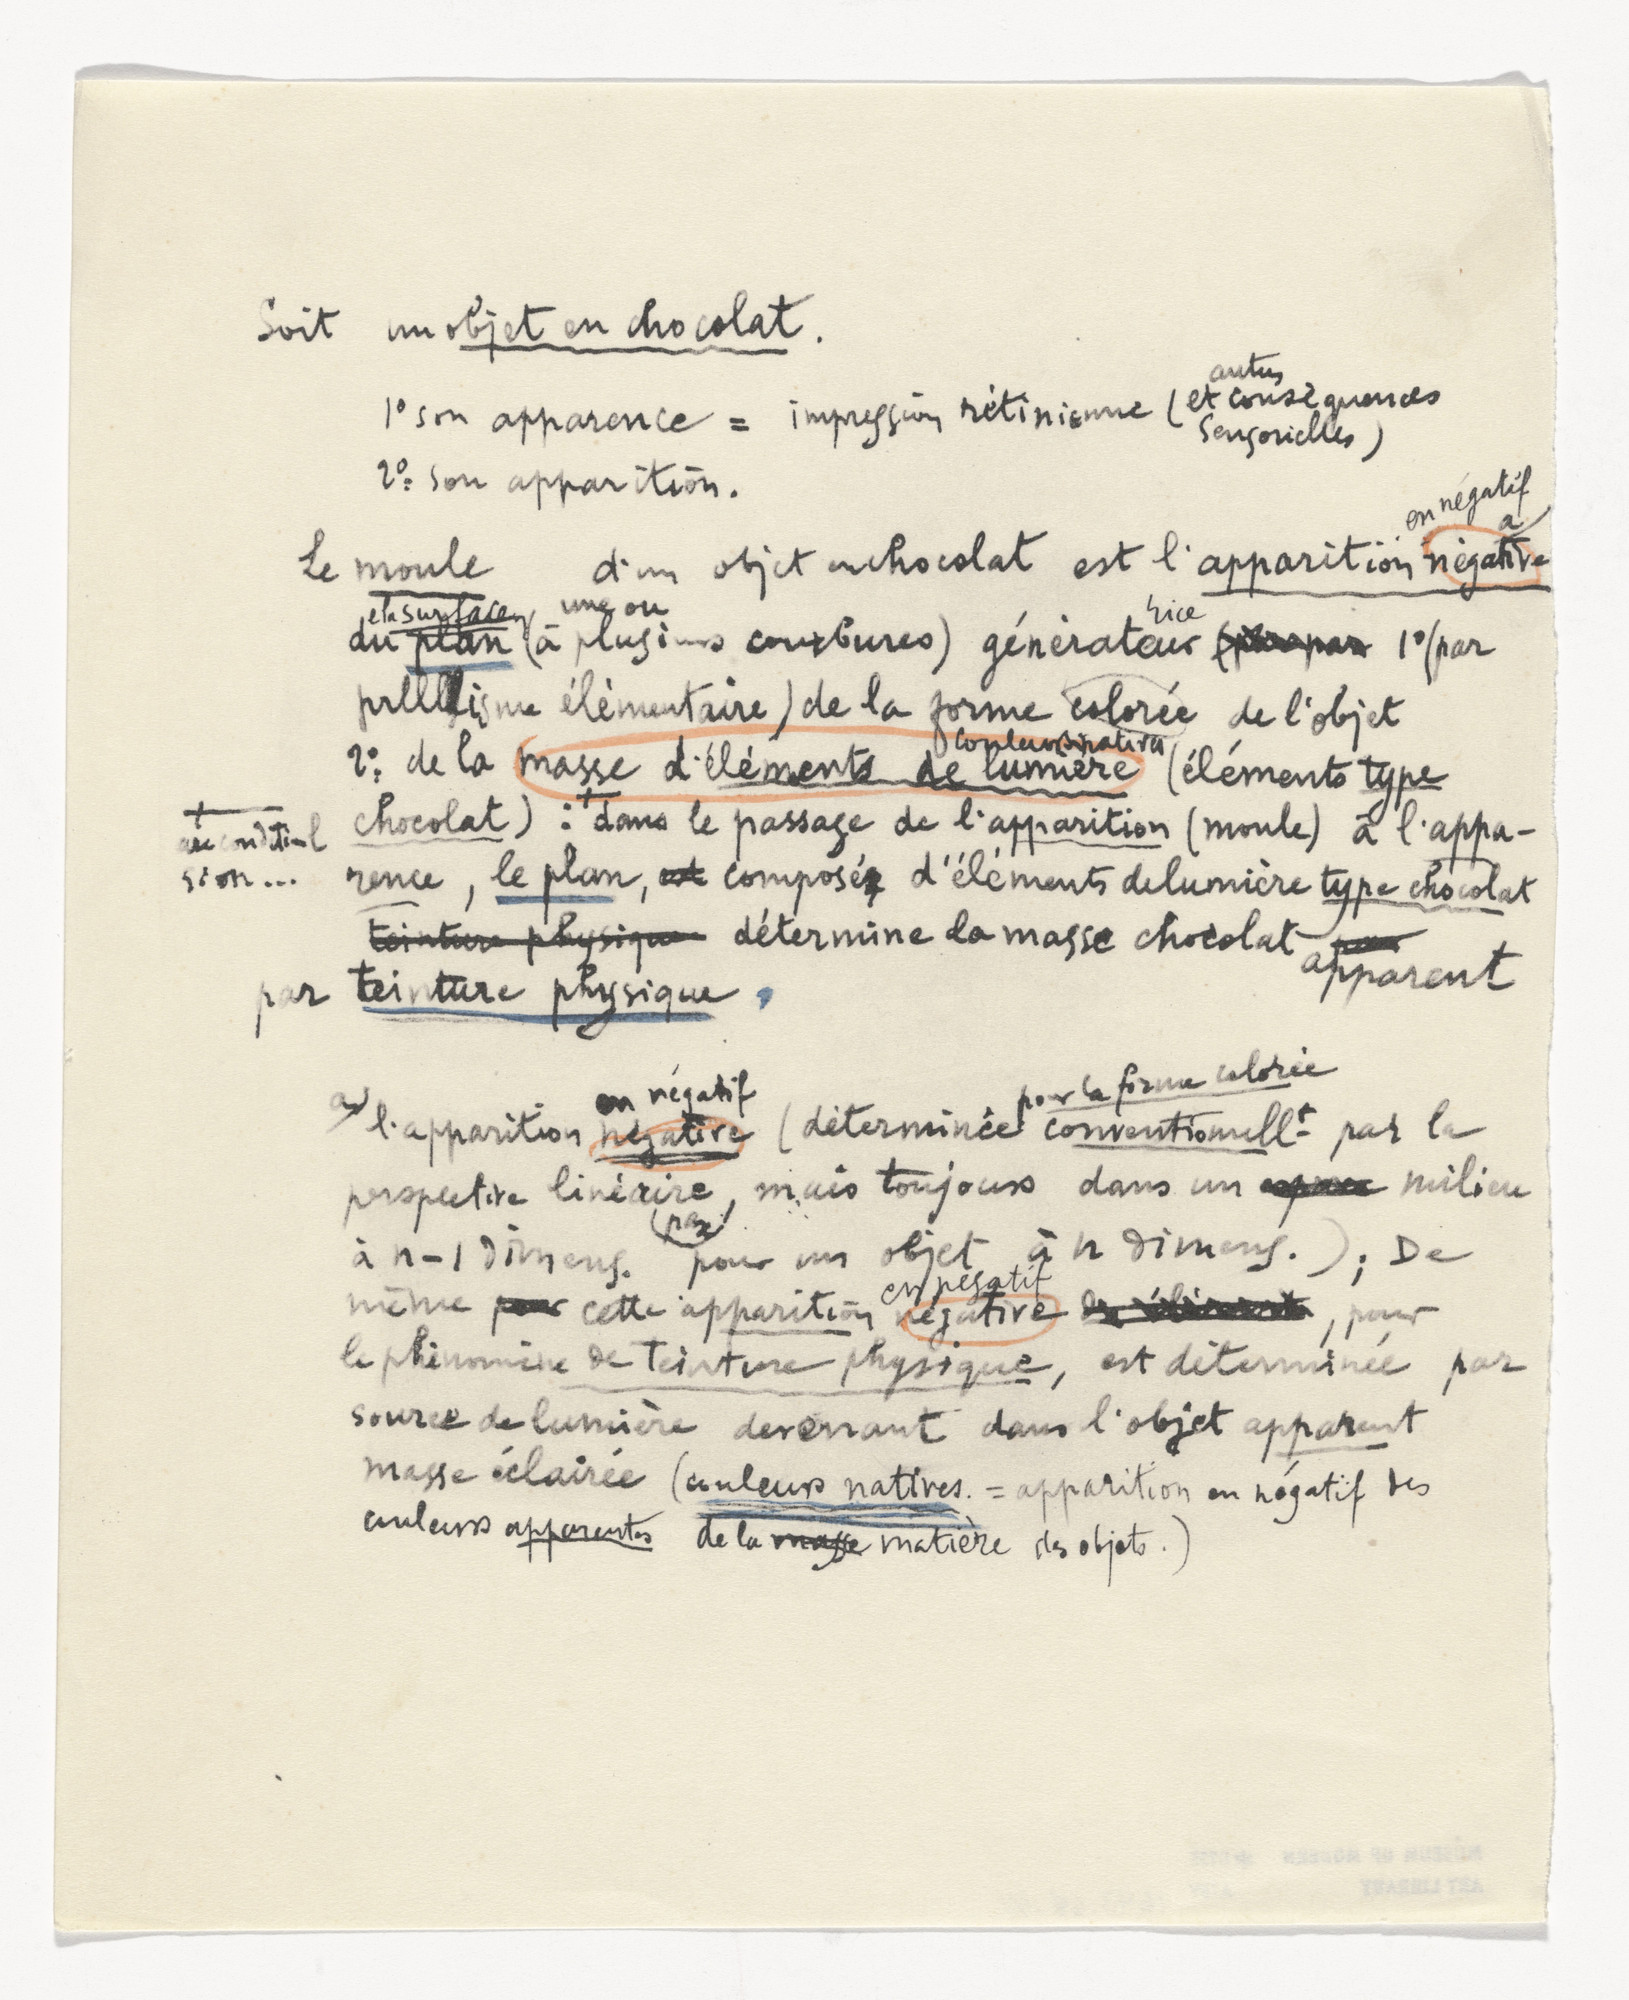 Soit un objet en chocolat.
autres
1° son apparence = impression rétinienne (et conséquences
sensorielles)
2°: son apparition.
en négatif
a
Le moule d'un objet en chocolat est l'apparition négative
et la surface une ou rice
du plan (à plusieurs courbures) générateur 1° (par
élémentaire) de la forme colorée de l'objet
couleurs natives
2°: de la masse d'éléments de lumière (éléments type
chocolat) : + dans le passage de l'apparition (moule) à l'appa-
+
sion...
rence, le plan, est composé d'éléments de lumière type chocolat
teinture physique détermine la masse chocolat pour
apparent
par teinture physique,
en négatif pour la forme colorée
a/ l'apparition négative (déterminée conventionellt par la
perspective linéaire, mais toujours dans un espace milieu
(par)
à n-1 dimens. pour un objet à n dimens.); De
en négatif
même pour cette apparition négative, pour
le phénomène de teinture physique, est déterminée par
source de lumière devenant dans l'objet apparent
masse éclairée (couleurs natives. = apparition en négatif des
couleurs apparentes de la masse matière des objets.)
MUSEUM OF MODERN
ART LIBRARY